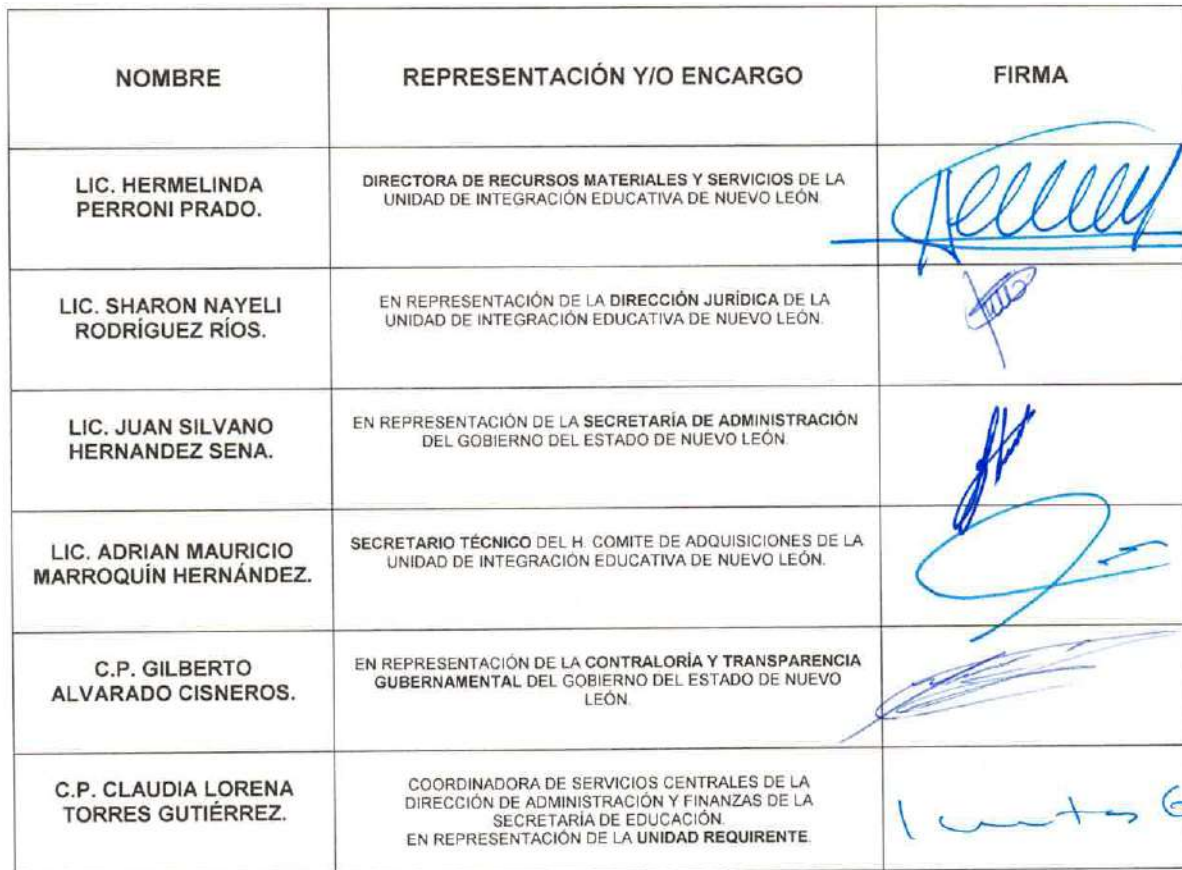 NOMBRE
REPRESENTACIÓN Y/O ENCARGO
FIRMA
LIC. HERMELINDA
PERRONI PRADO.
DIRECTORA DE RECURSOS MATERIALES Y SERVICIOS DE LA
UNIDAD DE INTEGRACIÓN EDUCATIVA DE NUEVO LEÓN.
LIC. SHARON NAYELI
RODRÍGUEZ RÍOS.
EN REPRESENTACIÓN DE LA DIRECCIÓN JURÍDICA DE LA
UNIDAD DE INTEGRACIÓN EDUCATIVA DE NUEVO LEÓN.
LIC. JUAN SILVANO
HERNANDEZ SENA.
EN REPRESENTACIÓN DE LA SECRETARÍA DE ADMINISTRACIÓN
DEL GOBIERNO DEL ESTADO DE NUEVO LEÓN.
LIC. ADRIAN MAURICIO
MARROQUÍN HERNÁNDEZ.
SECRETARIO TÉCNICO DEL H. COMITE DE ADQUISICIONES DE LA
UNIDAD DE INTEGRACIÓN EDUCATIVA DE NUEVO LEÓN.
C.P. GILBERTO
ALVARADO CISNEROS.
EN REPRESENTACIÓN DE LA CONTRALORÍA Y TRANSPARENCIA
GUBERNAMENTAL DEL GOBIERNO DEL ESTADO DE NUEVO
LEÓN.
C.P. CLAUDIA LORENA
TORRES GUTIÉRREZ.
COORDINADORA DE SERVICIOS CENTRALES DE LA
DIRECCIÓN DE ADMINISTRACIÓN Y FINANZAS DE LA
SECRETARÍA DE EDUCACIÓN.
EN REPRESENTACIÓN DE LA UNIDAD REQUIRENTE.